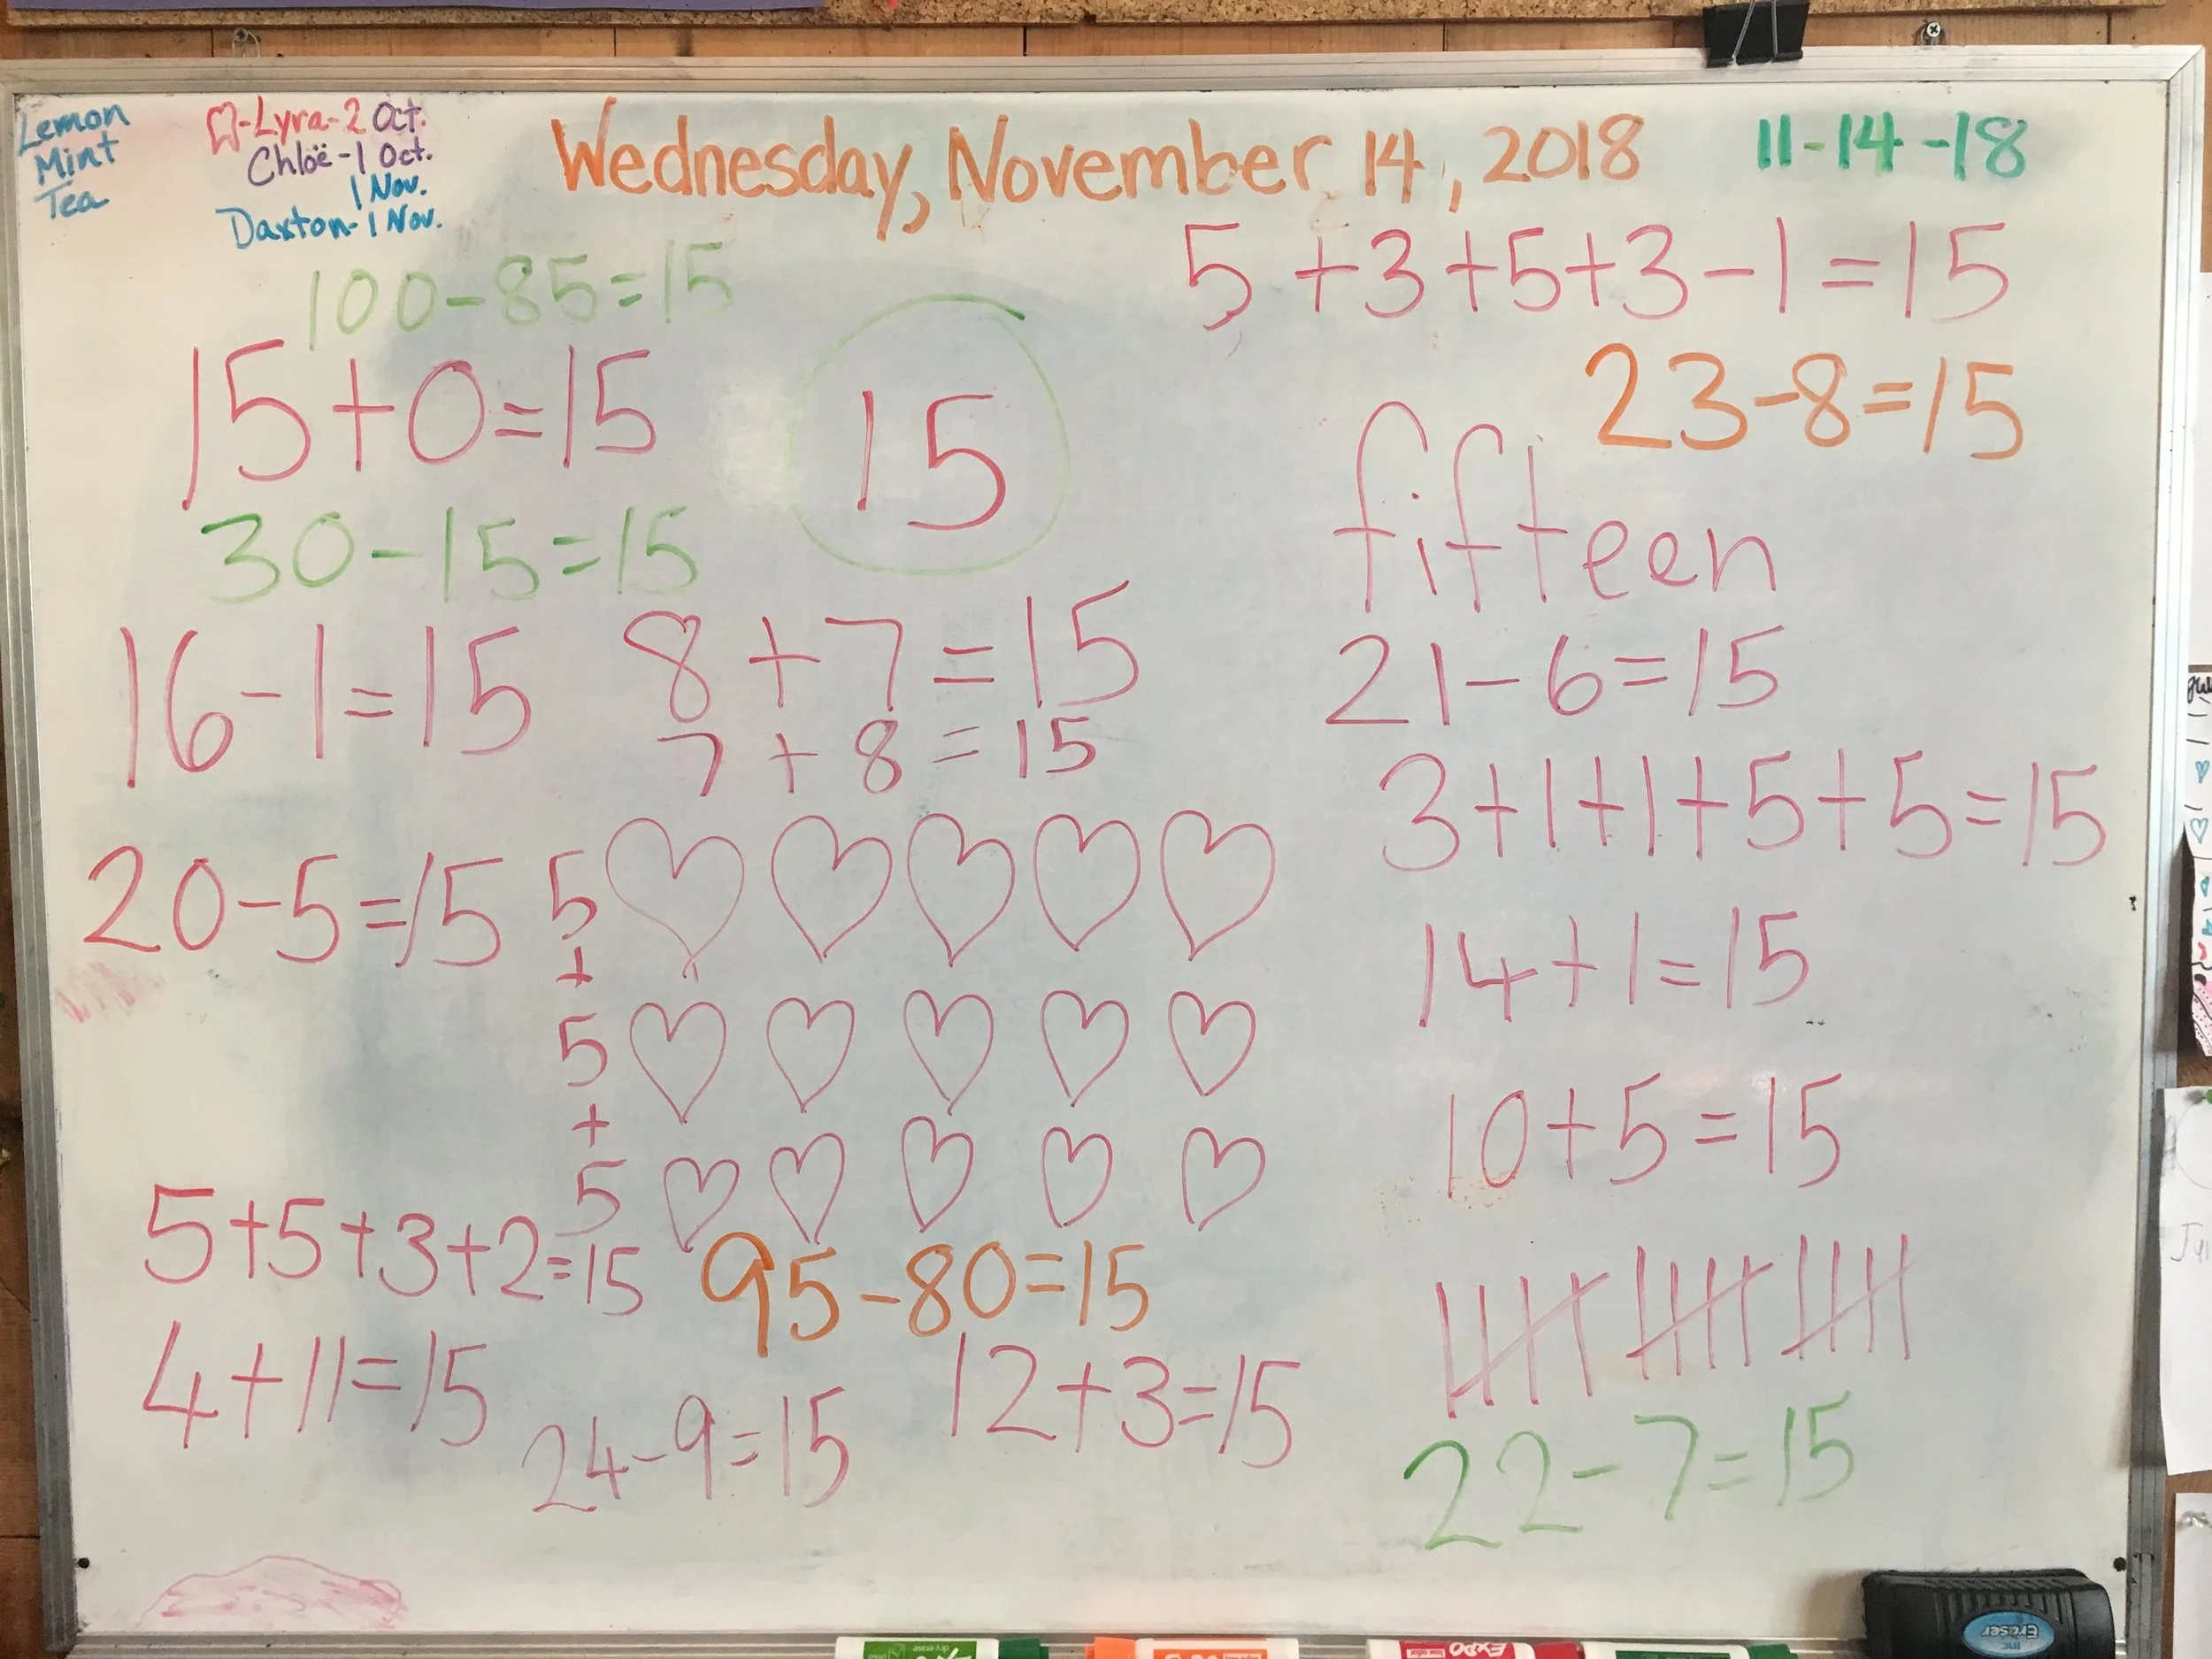 Lemon
Mint
Tea
-Lyra-2 Oct.
Chloë-1 Oct.
1 Nov.
Daxton-1 Nov.
Wednesday, November 14, 2018
11-14-18
100-85=15
15+0=15
30-15=15
15
5+3+5+3-1=15
23-8=15
fifteen
16-1=15
8+7=15
7+8=15
21-6=15
3+1+1+5+5=15
20-5=15
5
+
5
+
5
14+1=15
10+5=15
5+5+3+2=15
95-80=15
4+11=15
24-9=15
12+3=15
22-7=15
EXPO
low odor
dry erase
Eraser